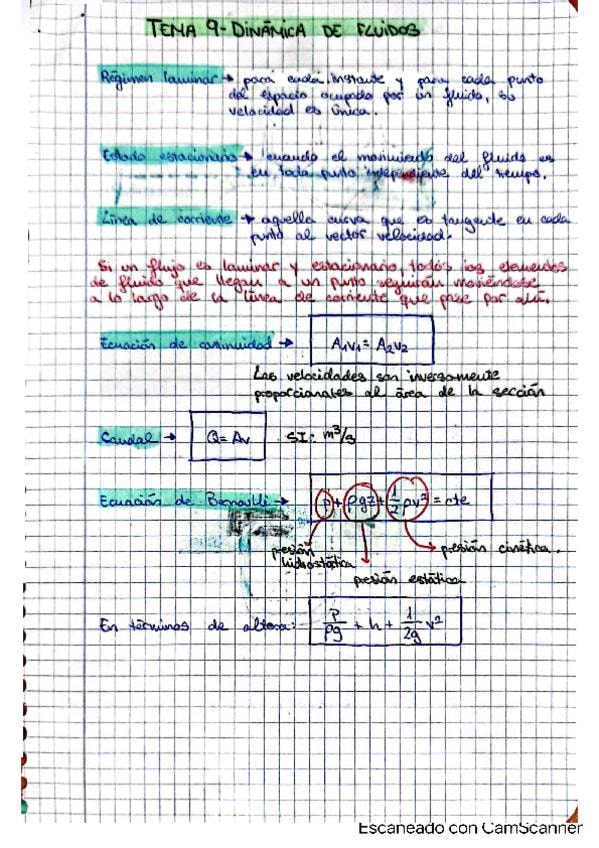 TEMA 9 - DINÁMICA DE FLUIDOS
Régimen laminar → para cada instante y para cada punto
del espacio ocupado por un fluido, su
velocidad es única.
Estado estacionario → cuando el movimiento del fluido es
en todo punto independiente del tiempo.
Línea de corriente → aquella curva que es tangente en cada
punto al vector velocidad.
Si un flujo es laminar y estacionario, todos los elementos
de fluido que llegan a un punto seguirán moviéndose
a lo largo de la línea de corriente que pase por ahí.
Ecuación de continuidad → A₁v₁ = A₂v₂
Las velocidades son inversamente
proporcionales al área de la sección
Caudal → Q = Av SI: m³/s
Ecuación de Bernoulli → p + ρgz + 1/2 ρv² = cte
presión hidrostática
presión estática
presión cinética.
En términos de altura: P/ρg + h + 1/2g v²
Escaneado con CamScanner